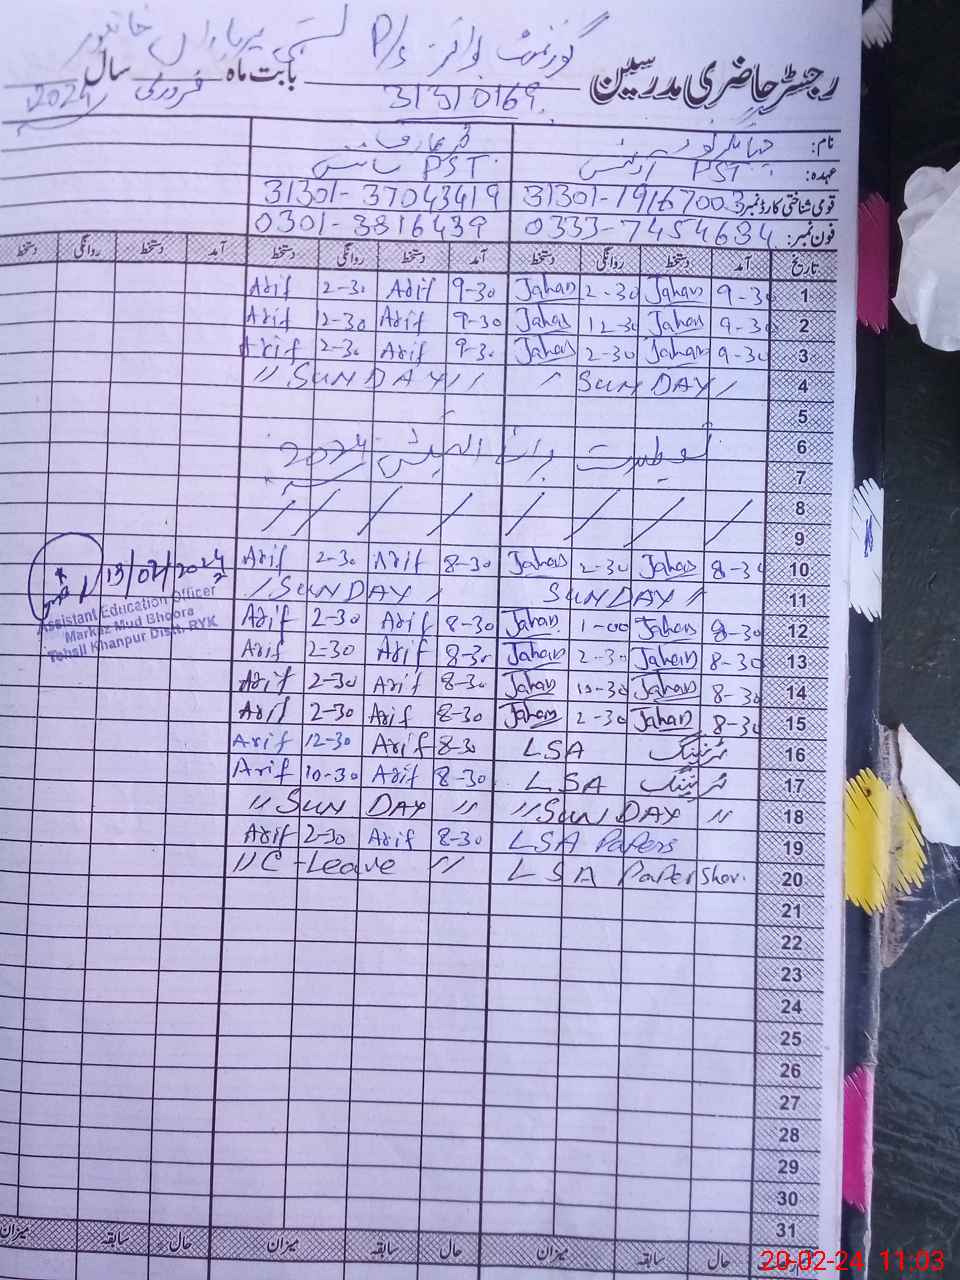 گورنمنٹ بوائز P/S بستی
رجسٹر حاضری مدرسین
بابت ماہ فروری سال 2024
31310169
نام:
عہدہ: PST PST سائنس
قومی شناختی کارڈ نمبر: 31301-1916700 3 31301-37043419
فون نمبر: 0333-7454634 0301-3816439
تاریخ آمد دستخط روانگی دستخط آمد دستخط روانگی دستخط آمد دستخط روانگی دستخط
1 9-30 Jahan 2-30 Jahan 9-30 Arif 2-30 Arif
2 9-30 Jahan 12-30 Jahan 9-30 Arif 12-30 Arif
3 9-30 Jahan 2-30 Jahan 9-30 Arif 2-30 Arif
4 SUNDAY SUNDAY
5
6 تعطیلات برائے الیکشن 2024
7
8
9
10 8-30 Jahan 2-30 Jahan 8-30 Arif 2-30 Arif
13/02/2024
11 SUNDAY SUNDAY
Assistant Education Officer
Markaz Mud Bhoora
Tehsil Khanpur Distt. RYK
12 8-30 Jahan 1-00 Jahan 8-30 Arif 2-30 Arif
13 8-30 Jahan 2-30 Jahan 8-30 Arif 2-30 Arif
14 8-30 Jahan 10-30 Jahan 8-30 Arif 2-30 Arif
15 8-30 Jahan 2-30 Jahan 8-30 Arif 2-30 Arif
16 ٹریننگ LSA 8-30 Arif 12-30 Arif
17 ٹریننگ LSA 8-30 Arif 10-30 Arif
18 "SUNDAY" "SUN DAY"
19 LSA Papers 8-30 Arif 2-30 Arif
20 LSA Paper "C-Leave"
21
22
23
24
25
26
27
28
29
30
31
حال سابقہ میزان حال سابقہ میزان حال سابقہ میزان
20-02-24 11:03